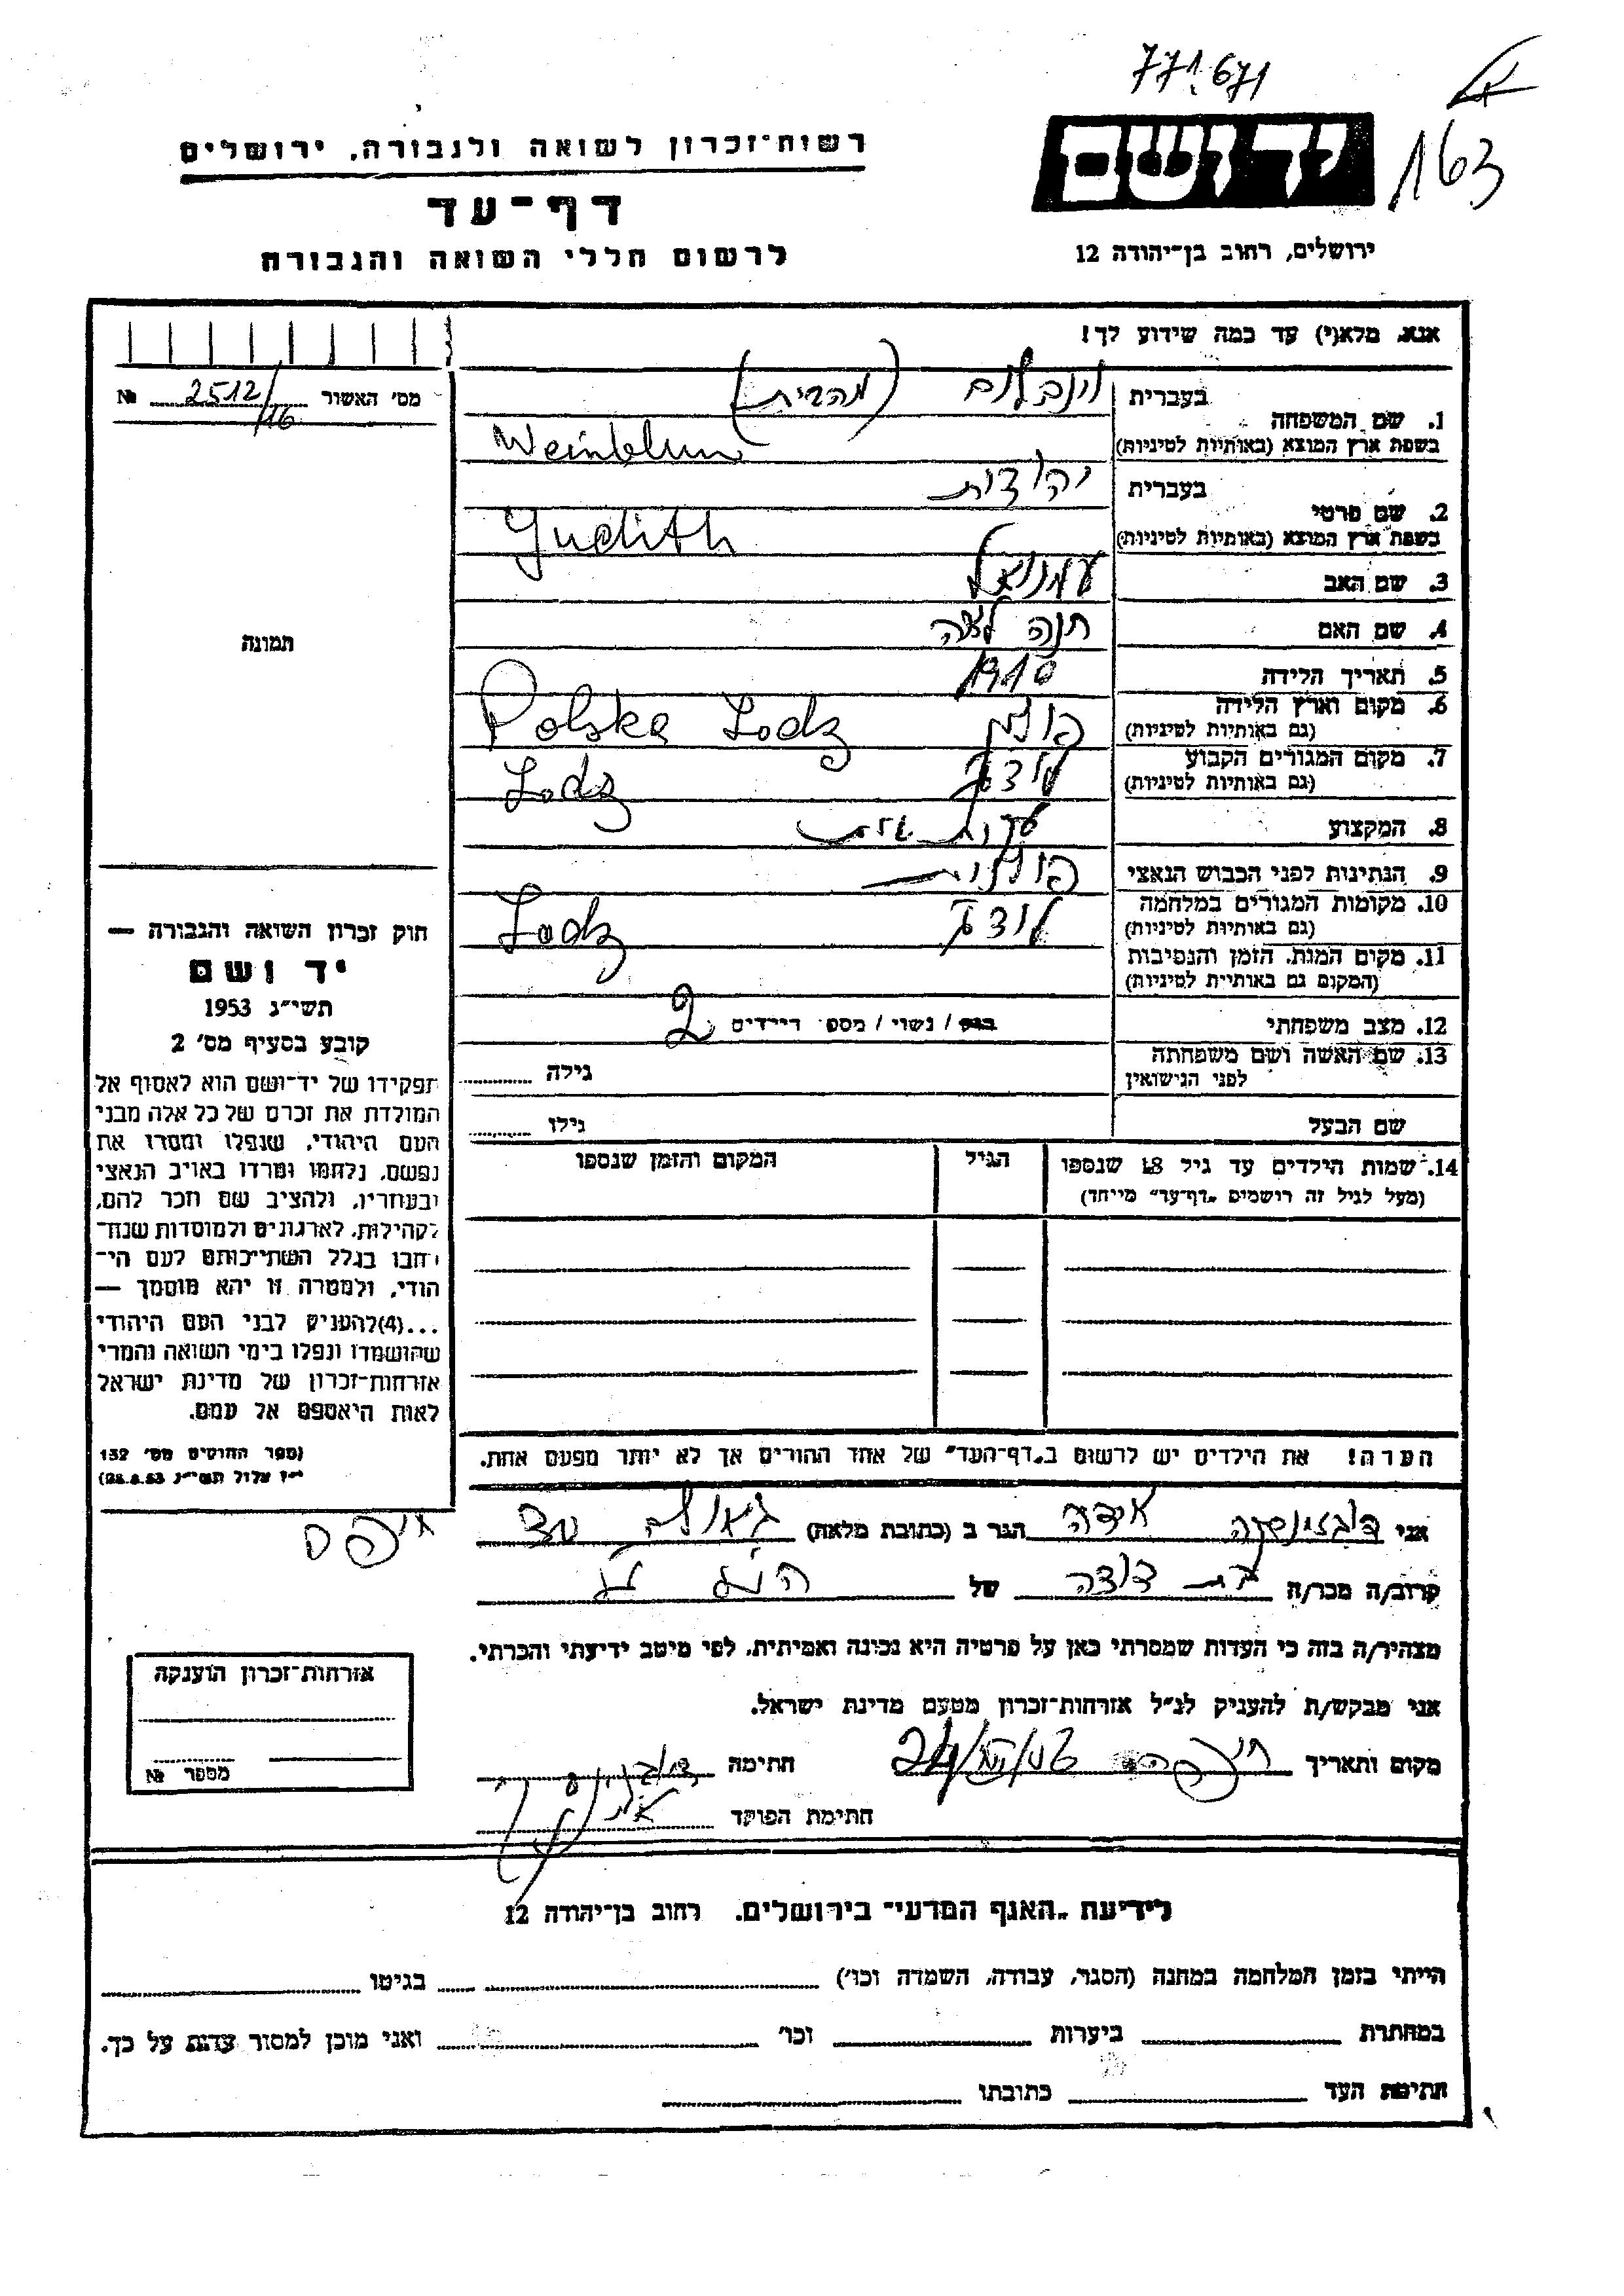 771.671
163
יד ושם
רשות־זכרון לשואה ולגבורה, ירושלים
דף־עד
לרשום חללי השואה והגבורה
ירושלים, רחוב בן־יהודה 12
אנא, מלא(י) עד כמה שידוע לך!
מס' האשור 2512/16 №
1. שם המשפחה
בעברית
וינבלום
בשפת ארץ המוצא (באותיות לטיניות)
Weinblum
2. שם פרטי
בעברית
יהודית
בשפת ארץ המוצא (באותיות לטיניות)
Judith
3. שם האב עמנואל
4. שם האם חנה לאה
5. תאריך הלידה 1910
6. מקום וארץ הלידה
(גם באותיות לטיניות)
פולין Polska Lodz
7. מקום המגורים הקבוע
(גם באותיות לטיניות)
לודז' Lodz
8. המקצוע עקרת בית
9. הנתינות לפני הכבוש הנאצי פולנית
10. מקומות המגורים במלחמה
(גם באותיות לטיניות)
לודז' Lodz
11. מקום המות, הזמן והנסיבות
(המקום גם באותיות לטיניות)
12. מצב משפחתי רווק / נשוי / מספר הילדים 2
13. שם האשה ושם משפחתה
לפני הנישואין
גילה
שם הבעל גילו
14. שמות הילדים עד גיל 18 שנספו
(מעל לגיל זה רושמים "דף־עד" מייחד)
הגיל
המקום והזמן שנספו
הערה! את הילדים יש לרשום ב"דף־העד" של אחד ההורים אך לא יותר מפעם אחת.
תמונה
חוק זכרון השואה והגבורה —
יד ושם
תשי"ג 1953
קובע בסעיף מס' 2
תפקידו של יד־ושם הוא לאסוף אל
המולדת את זכרם של כל אלה מבני
העם היהודי, שנפלו ומסרו את
נפשם, נלחמו ומרדו באויב הנאצי
ובעוזריו, ולהציב שם וזכר להם,
לקהילות, לארגונים ולמוסדות שנח־
רבו בגלל השתייכותם לעם הי־
הודי, ולמטרה זו יהא מוסמך —
...(4)להעניק לבני העם היהודי
שהושמדו ונפלו בימי השואה והמרי
אזרחות־זכרון של מדינת ישראל
לאות היאספם אל עמם.
(ספר החוקים מס' 132
י"ז אלול תשי"ג 28.8.53)
אני אידה הגר ב (כתובת מלאה) גאולה
חיפה
קרוב/ה מכר/ה בת דודה של הנ"ל
מצהיר/ה בזה כי העדות שמסרתי כאן על פרטיה היא נכונה ואמיתית, לפי מיטב ידיעתי והכרתי.
אני מבקש/ת להעניק לנ"ל אזרחות־זכרון מטעם מדינת ישראל.
מקום ותאריך חיפה חתימה
חתימת הפוקד
אזרחות־זכרון הוענקה
מספר №
לידיעת "האגף המדעי" בירושלים, רחוב בן־יהודה 12
הייתי בזמן המלחמה במחנה (הסגר, עבודה, השמדה וכו') בגיטו
במחתרת ביערות וכו' ואני מוכן למסור עדות על כך.
חתימת העד כתובתו